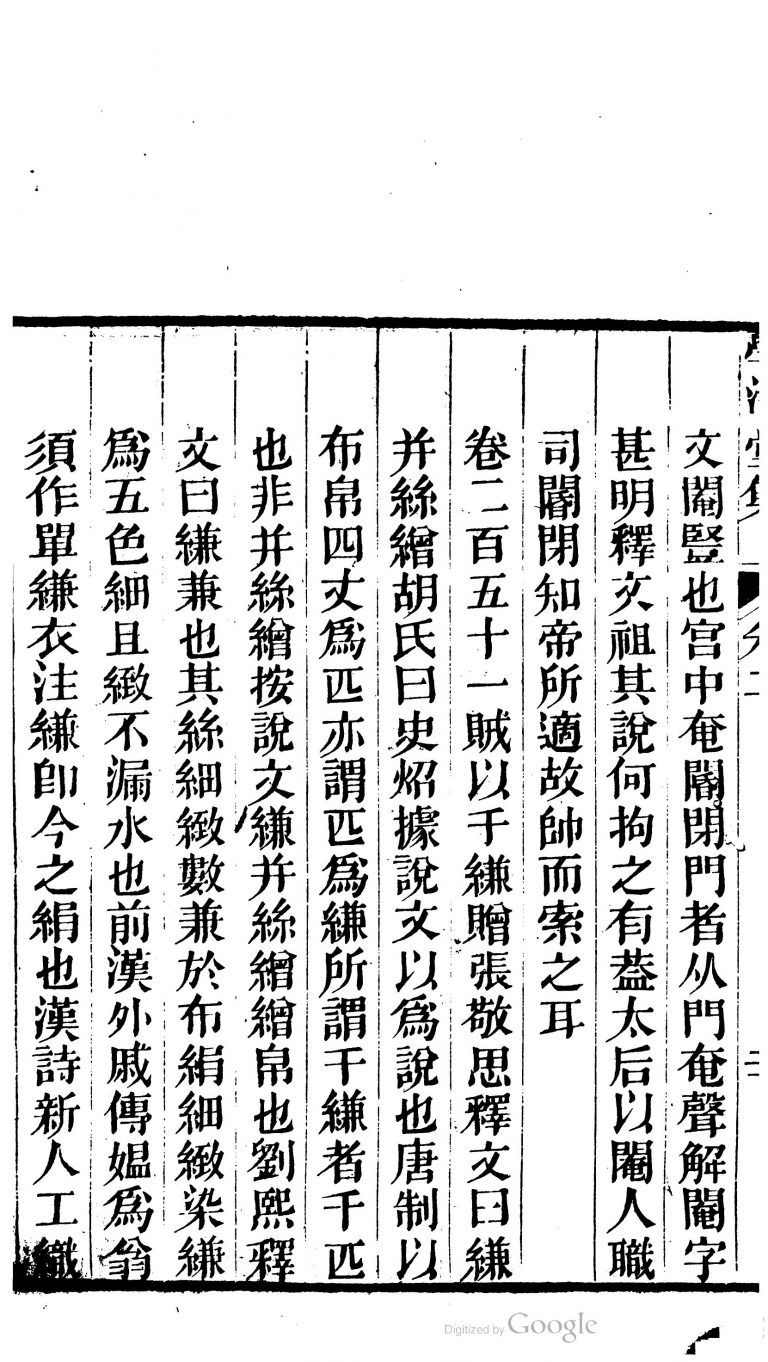 文閹豎也宮中奄閽閉門者从門奄聲解閹字
甚明釋文祖其說何拘之有葢太后以閹人職
司閽閉知帝所適故帥而索之耳
卷二百五十一賊以千縑贈張敬思釋文曰縑
并絲繒胡氏曰史炤據說文以爲說也唐制以
布帛四丈爲匹亦謂匹爲縑所謂千縑者千匹
也非并絲繒按說文縑并絲繒繒帛也劉熙釋
文曰縑兼也其絲細緻數兼於布絹細緻染縑
爲五色細且緻不漏水也前漢外戚傳媼爲翁
須作單縑衣注縑卽今之絹也漢詩新人工織
Digitized by Google